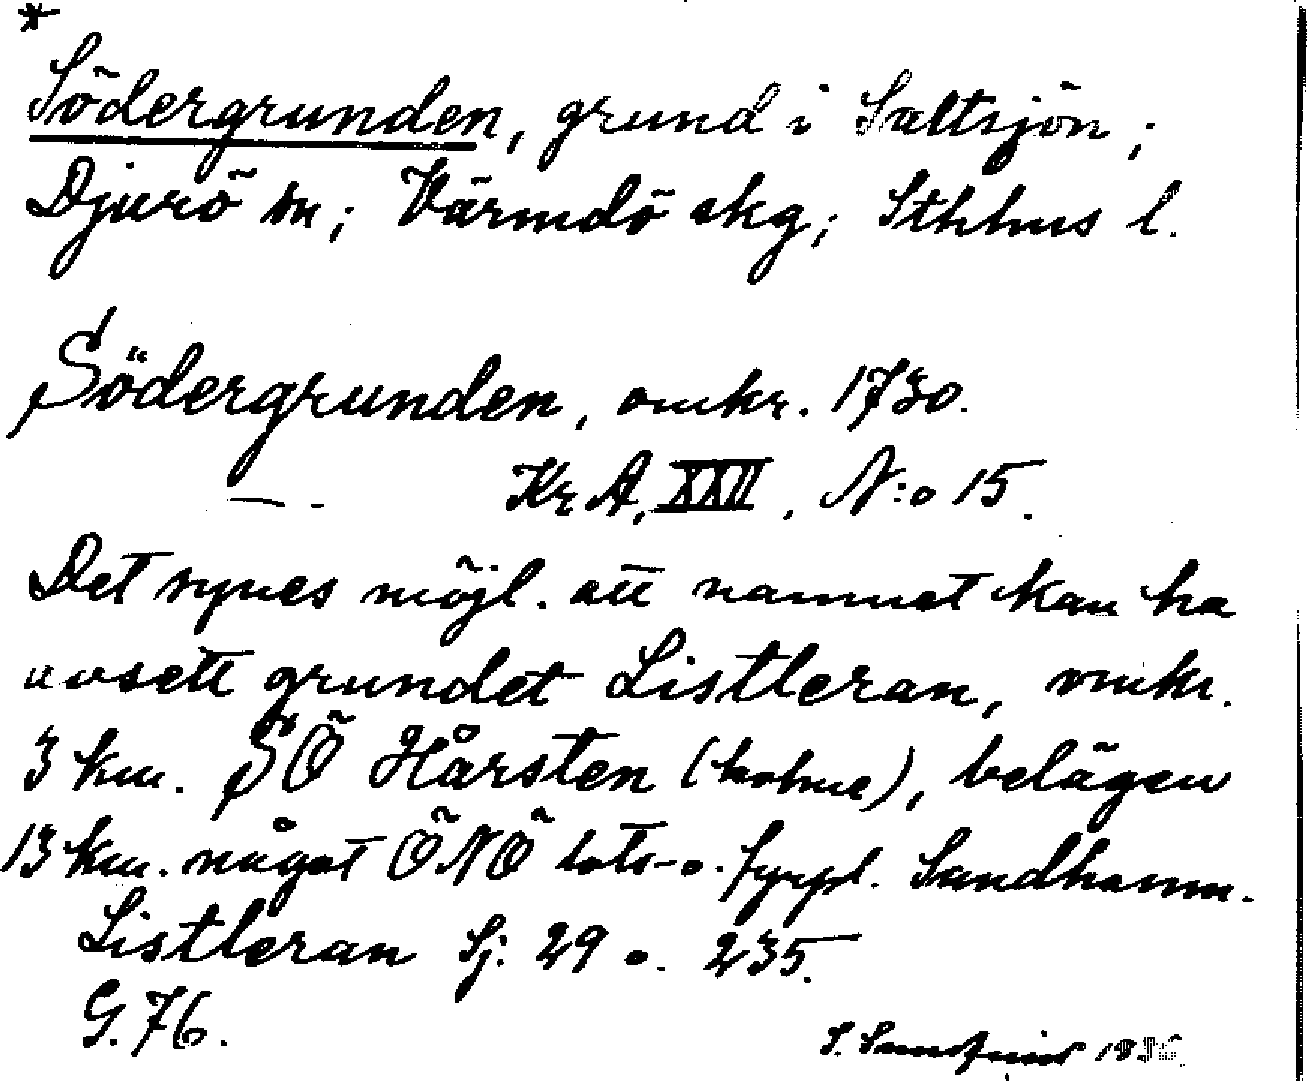 *
Södergrunden, grund i Saltsjön;
Djurö sn; Värmdö skg; Sthlms l.
Södergrunden, omkr. 1730.
— - KrA, XXII, N:o 15.
Det synes möjl. att namnet kan ha
avsett grundet Listleran, omkr.
3 km. SÖ Hårsten (holme), belägen
13 km. något ÖNÖ lots- o. fyrpl. Sandhamn.
Listleran Sj. 29 o. 235.
G. 76.
S. Sundquist